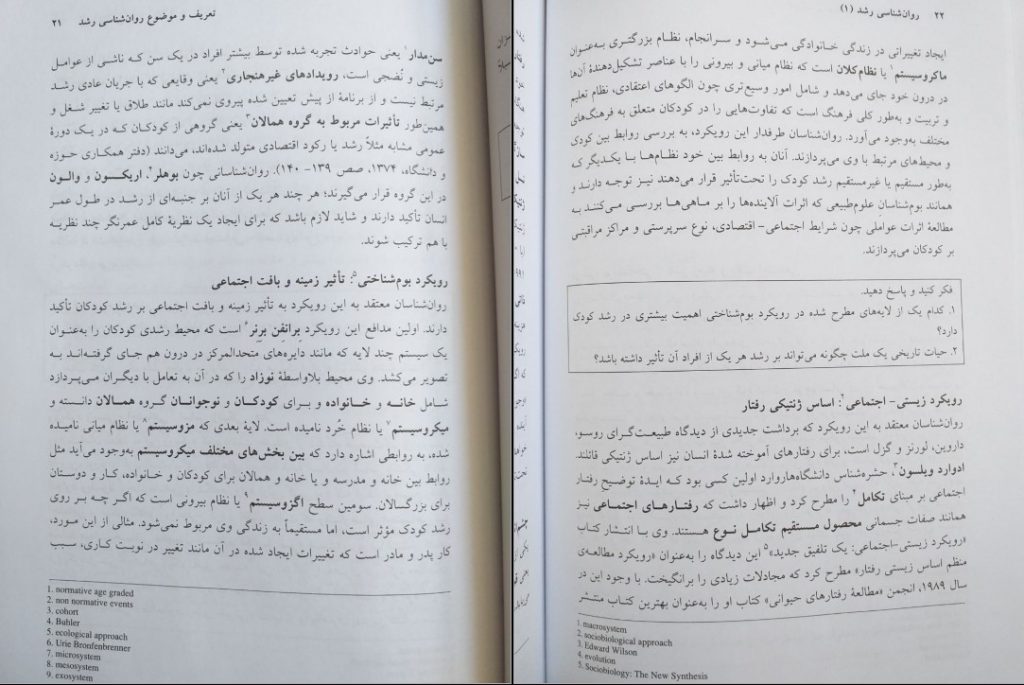 تعریف و موضوع روان‌شناسی رشد ۲۱
سن‌مدار¹ یعنی حوادث تجربه شده توسط بیشتر افراد در یک سن که ناشی از عوامل
زیستی و نُضجی است، رویدادهای غیرهنجاری² یعنی وقایعی که با جریان عادی رشد
مرتبط نیست و از برنامهٔ از پیش تعیین شده پیروی نمی‌کند مانند طلاق یا تغییر شغل و
همین‌طور تأثیرات مربوط به گروه همالان³ یعنی گروهی از کودکان که در یک دورهٔ
عمومی مشابه مثلاً رشد یا رکود اقتصادی متولد شده‌اند، می‌دانند (دفتر همکاری حوزه
و دانشگاه، ۱۳۷۴، صص ۱۳۹- ۱۴۰). روان‌شناسانی چون بوهلر⁴، اریکسون و والون
در این گروه قرار می‌گیرند؛ هر چند هر یک از آنان بر جنبه‌ای از رشد در طول عمر
انسان تأکید دارند و شاید لازم باشد که برای ایجاد یک نظریهٔ کامل عمرنگر چند نظریه
با هم ترکیب شوند.
رویکرد بوم‌شناختی⁵: تأثیر زمینه و بافت اجتماعی
روان‌شناسان معتقد به این رویکرد به تأثیر زمینه و بافت اجتماعی بر رشد کودکان تأکید
دارند. اولین مدافع این رویکرد برانفن برنر⁶ است که محیط رشدی کودکان را به‌عنوان
یک سیستم چند لایه که مانند دایره‌های متحدالمرکز در درون هم جای گرفته‌اند به
تصویر می‌کشد. وی محیط بلاواسطهٔ نوزاد را که در آن به تعامل با دیگران می‌پردازد
شامل خانه و خانواده و برای کودکان و نوجوانان گروه همالان دانسته و
میکروسیستم⁷ یا نظام خُرد نامیده است. لایهٔ بعدی که مزوسیستم⁸ یا نظام میانی نامیده
شده، به روابطی اشاره دارد که بین بخش‌های مختلف میکروسیستم به‌وجود می‌آید مثل
روابط بین خانه و مدرسه و یا خانه و همالان برای کودکان و خانواده، کار و دوستان
برای بزرگسالان. سومین سطح اگزوسیستم⁹ یا نظام بیرونی است که اگر چه بر روی
رشد کودک مؤثر است، اما مستقیماً به زندگی وی مربوط نمی‌شود. مثالی از این مورد،
کار پدر و مادر است که تغییرات ایجاد شده در آن مانند تغییر در نوبت کاری، سبب
1. normative age graded
2. non normative events
3. cohort
4. Buhler
5. ecological approach
6. Urie Bronfenbrenner
7. microsystem
8. mesosystem
9. exosystem
۲۲ روان‌شناسی رشد (۱)
ایجاد تغییراتی در زندگی خانوادگی می‌شود و سرانجام، نظام بزرگتری به‌عنوان
ماکروسیستم¹ یا نظام‌کلان است که نظام میانی و بیرونی را با عناصر تشکیل‌دهندهٔ آن‌ها
در درون خود جای می‌دهد و شامل امور وسیع‌تری چون الگوهای اعتقادی، نظام تعلیم
و تربیت و به‌طور کلی فرهنگ است که تفاوت‌هایی را در کودکان متعلق به فرهنگ‌های
مختلف به‌وجود می‌آورد. روان‌شناسان طرفدار این رویکرد، به بررسی روابط بین کودک
و محیط‌های مرتبط با وی می‌پردازند. آنان به روابط بین خود نظام‌ها با یکدیگر که
به‌طور مستقیم یا غیرمستقیم رشد کودک را تحت‌تأثیر قرار می‌دهند نیز توجه دارند و
همانند بوم‌شناسان علوم‌طبیعی که اثرات آلاینده‌ها را بر ماهی‌ها بررسی می‌کنند به
مطالعهٔ اثرات عواملی چون شرایط اجتماعی- اقتصادی، نوع سرپرستی و مراکز مراقبتی
بر کودکان می‌پردازند.
فکر کنید و پاسخ دهید.
۱. کدام یک از لایه‌های مطرح شده در رویکرد بوم‌شناختی اهمیت بیشتری در رشد کودک
دارد؟
۲. حیات تاریخی یک ملت چگونه می‌تواند بر رشد هر یک از افراد آن تأثیر داشته باشد؟
رویکرد زیستی- اجتماعی²: اساس ژنتیکی رفتار
روان‌شناسان معتقد به این رویکرد که برداشت جدیدی از دیدگاه طبیعت‌گرای روسو،
داروین، لورنز و گزل است، برای رفتارهای آموخته شدهٔ انسان نیز اساس ژنتیکی قائلند.
ادوارد ویلسون³، حشره‌شناس دانشگاه‌هاروارد اولین کسی بود که ایدهٔ توضیح رفتار
اجتماعی بر مبنای تکامل⁴ را مطرح کرد و اظهار داشت که رفتارهای اجتماعی نیز
همانند صفات جسمانی محصول مستقیم تکامل نوع هستند. وی با انتشار کتاب
«رویکرد زیستی-اجتماعی: یک تلفیق جدید»⁵ این دیدگاه را به‌عنوان «رویکرد مطالعه‌ی
منظم اساس زیستی رفتار» مطرح کرد که مجادلات زیادی را برانگیخت. با وجود این در
سال ۱۹۸۹، انجمن «مطالعهٔ رفتارهای حیوانی» کتاب او را به‌عنوان بهترین کتاب منتشر
1. macrosystem
2. sociobiological approach
3. Edward Wilson
4. evolution
5. Sociobiology: The New Synthesis